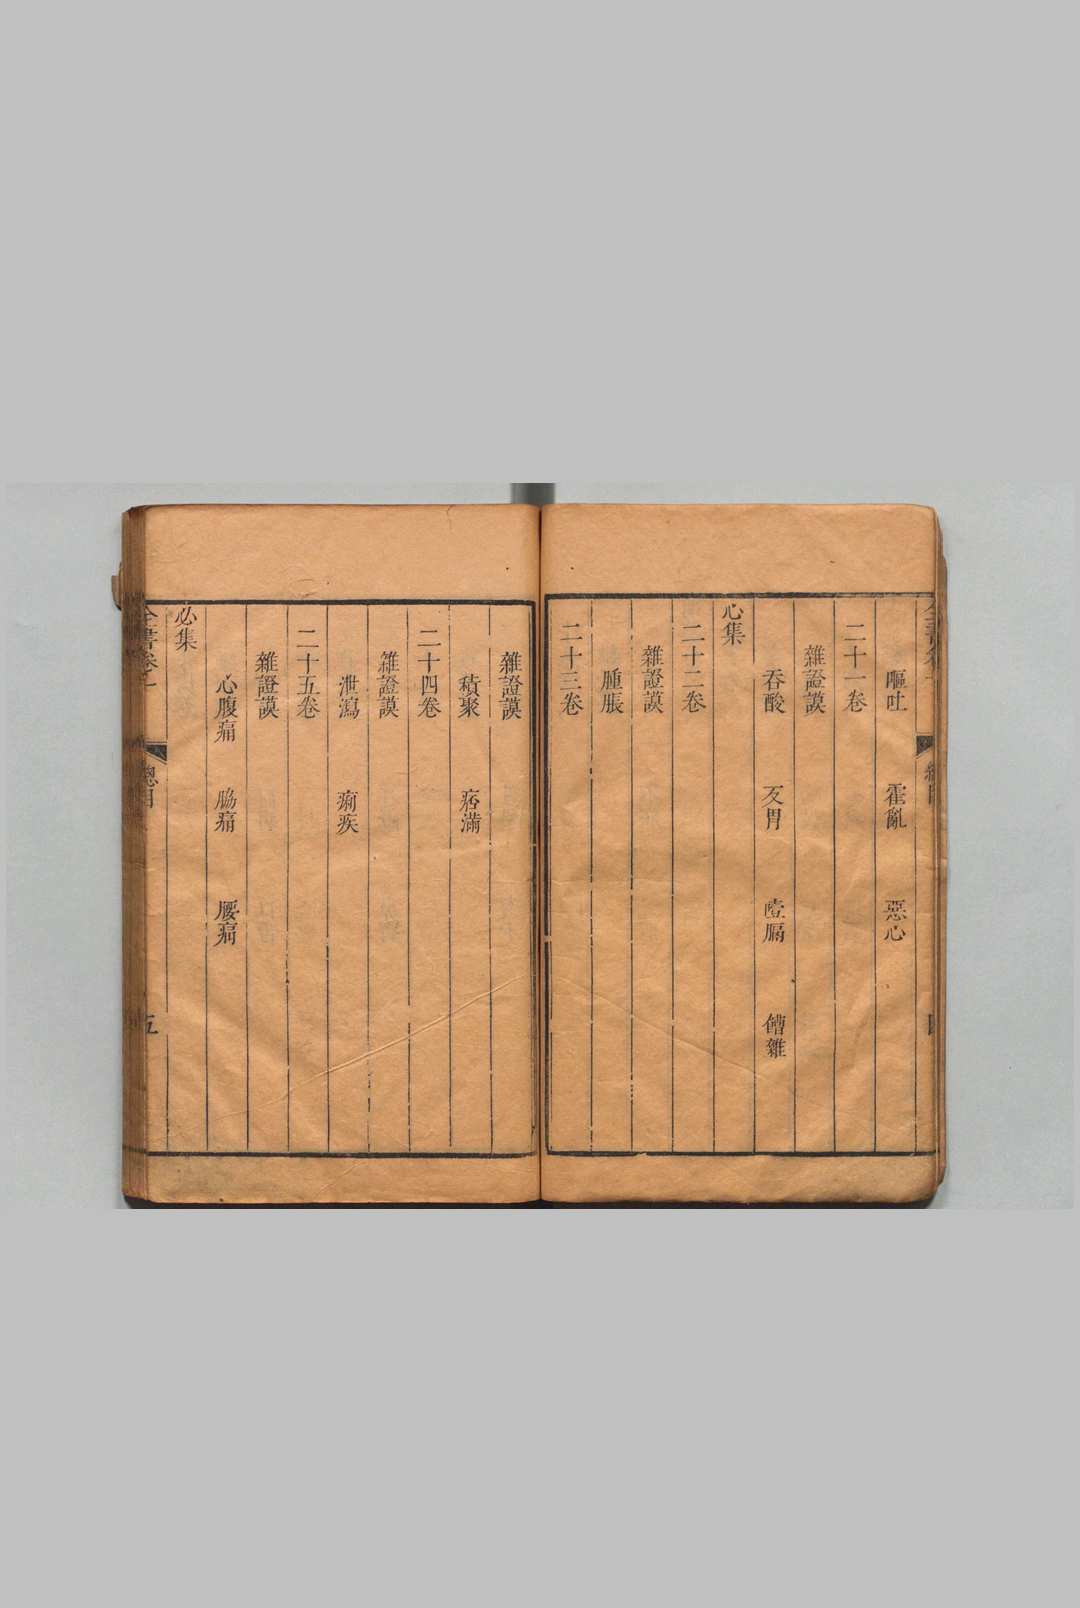 嘔吐 霍亂 惡心
二十一卷
雜證謨
吞酸 反胃 噎膈 嘈雜
心集
二十二卷
雜證謨
腫脹
二十三卷
雜證謨
積聚 痞滿
二十四卷
雜證謨
泄瀉 痢疾
二十五卷
雜證謨
心腹痛 脇痛 腰痛
必集
全書卷一 總目 五